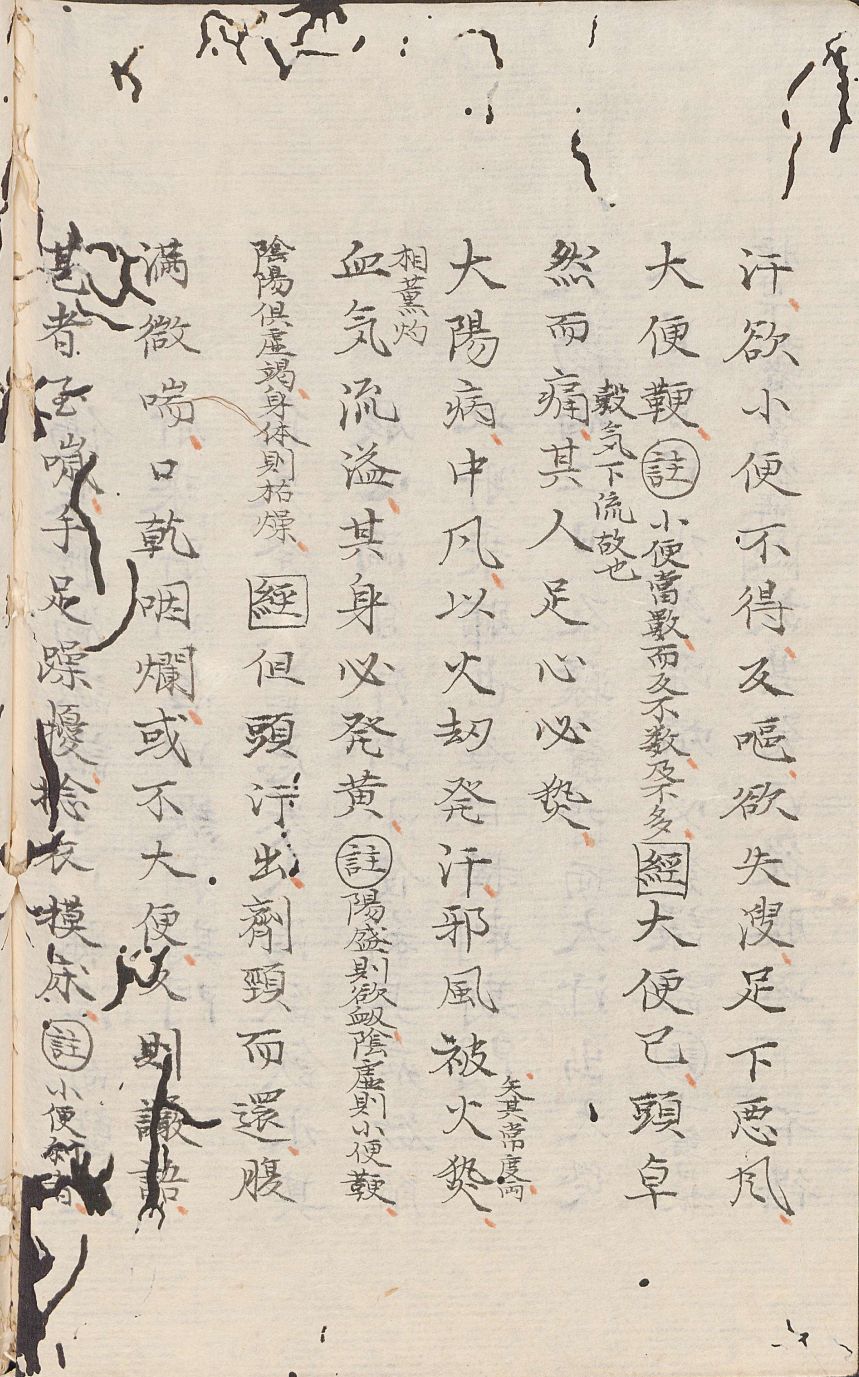 汗欲小便不得反嘔欲失溲足下悪风
大便鞕註小便當數而反不数及不多經大便已頭卓
穀気下流故也
然而痛其人足心必𤍠
大陽病中风以火劫発汗邪風被火𤍠
失其常度両
相薫灼
血気流溢其身必発黄註陽盛則欲衄陰虚則小便鞕
陰陽俱虚竭身体則枯燥經但頭汗出劑頸而還腹
満微喘口乾咽爛或不大便久則讝語
甚者至噦手足躁擾捻衣摸床註小便